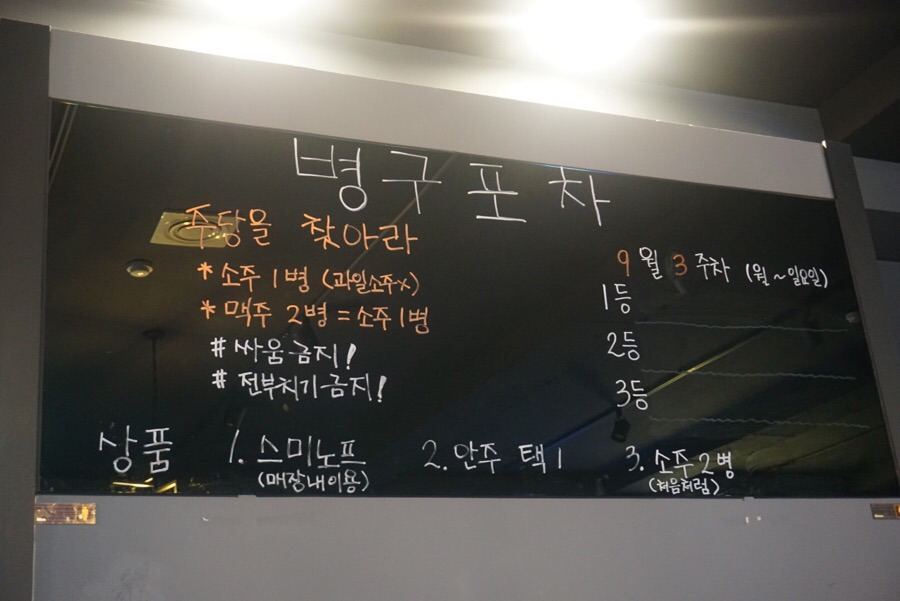 병구포차
주당을 찾아라
* 소주 1병 (과일소주x)
* 맥주 2병 = 소주 1병
# 싸움금지!
# 전부치기금지!
9월 3주차 (월~일요일)
1등
2등
3등
상품 1. 스미노프 2. 안주 택1 3. 소주 2병
(매장내이용) (처음처럼)